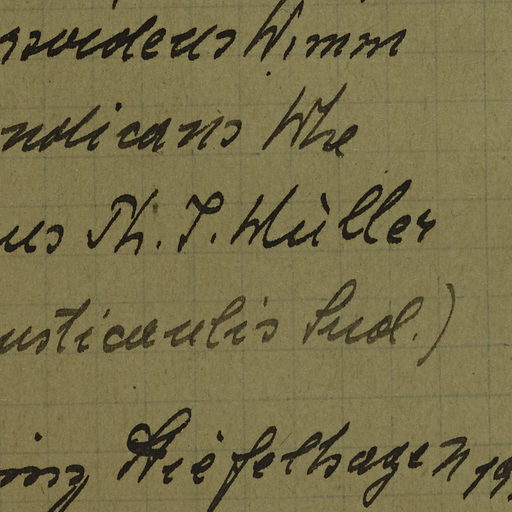 ssoideus Wimm
ndicans Whe
us Ph. J. Müller
usticaulis Sud.)
inz Stiefelhagen 19